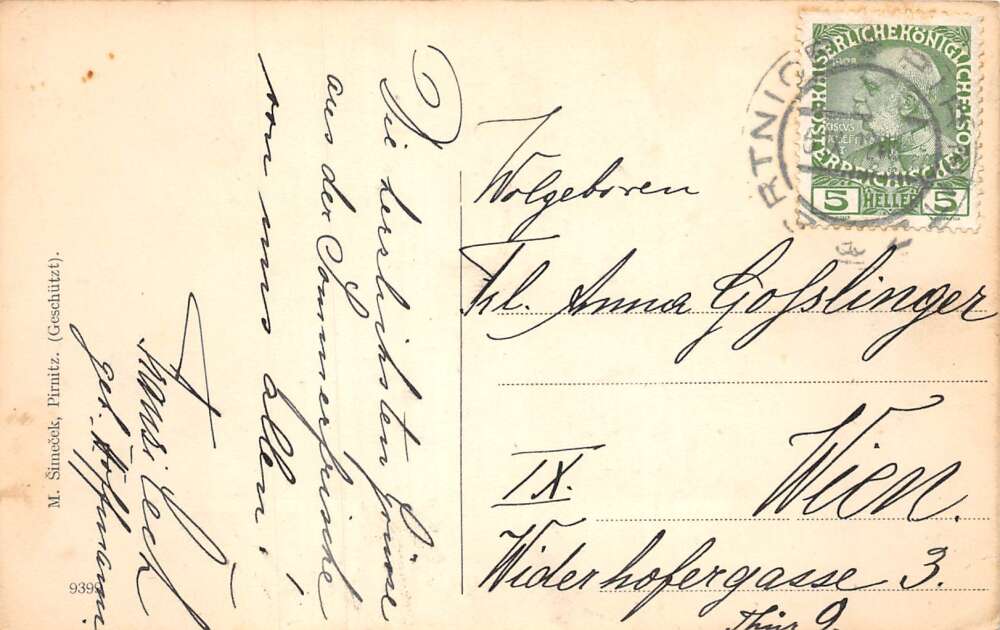 Die herzlichsten Grüsse
aus der Sommerfrische
von uns allen!
geb. Hoffmann.
Wolgeboren
Frl. Anna Gosslinger
IX. Wien.
Widerhofergasse 3.
Thür 9.
KAISERLICHE KÖNIGLICHE
ÖSTERREICHISCHE
5 HELLER 5
RTNICE
M. Šimeček, Pirnitz. (Geschützt).
9399